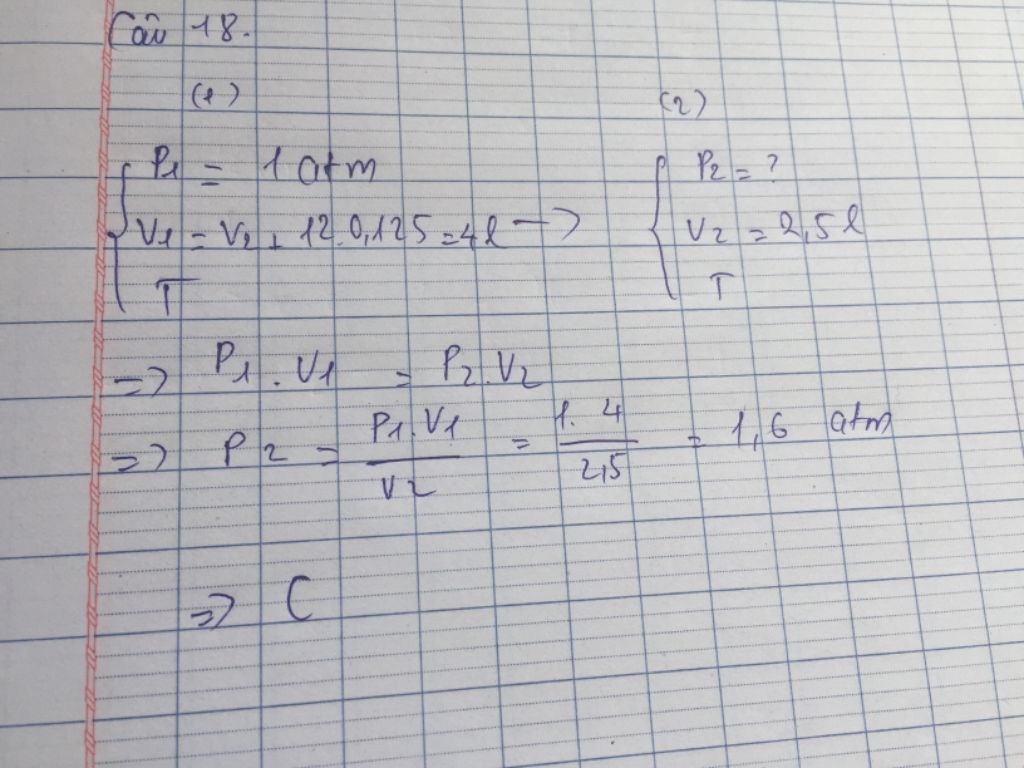 Câu 18.
(1) (2)
P1 = 1 atm P2 = ?
V1 = V2 + 12.0,125 = 4l → V2 = 2,5l
T T
=> P1 . V1 = P2 . V2
=> P2 = P1.V1 / V2 = 1.4 / 2,5 = 1,6 atm
=> C